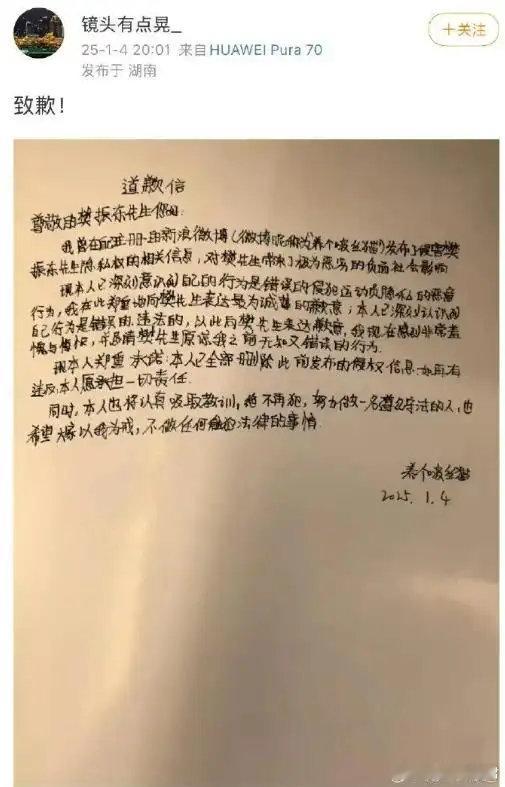 镜头有点晃_
+关注
25-1-4 20:01 来自HUAWEI Pura 70
发布于 湖南
致歉！
道歉信
尊敬的樊振东先生你好:
我曾在 注册 由新浪微博(微博昵称为养个啵丝猫)发布了侵害樊
振东先生隐私权的相关信息，对樊先生带来了极为恶劣的负面社会影响
现本人已深刻意识到自己的行为是错误的侵犯运动员隐私的恶意
行为，我在此郑重地向樊先生表达最为诚挚的歉意；本人已深刻认识到
自己行为是错误的、违法的，以此向樊先生表达歉意，我现在感到非常羞
愧与悔恨，并恳请樊先生原谅我之前无知又错误的行为.
现本人郑重承诺:本人已全部删除此前发布的侵权信息.如再有
违反本人愿承担一切责任.
同时,本人也将认真吸取教训,绝不再犯,努力做一名遵纪守法的人,也
希望大家以我为戒,不做任何触犯法律的事情.
养个啵丝猫
2025.1.4